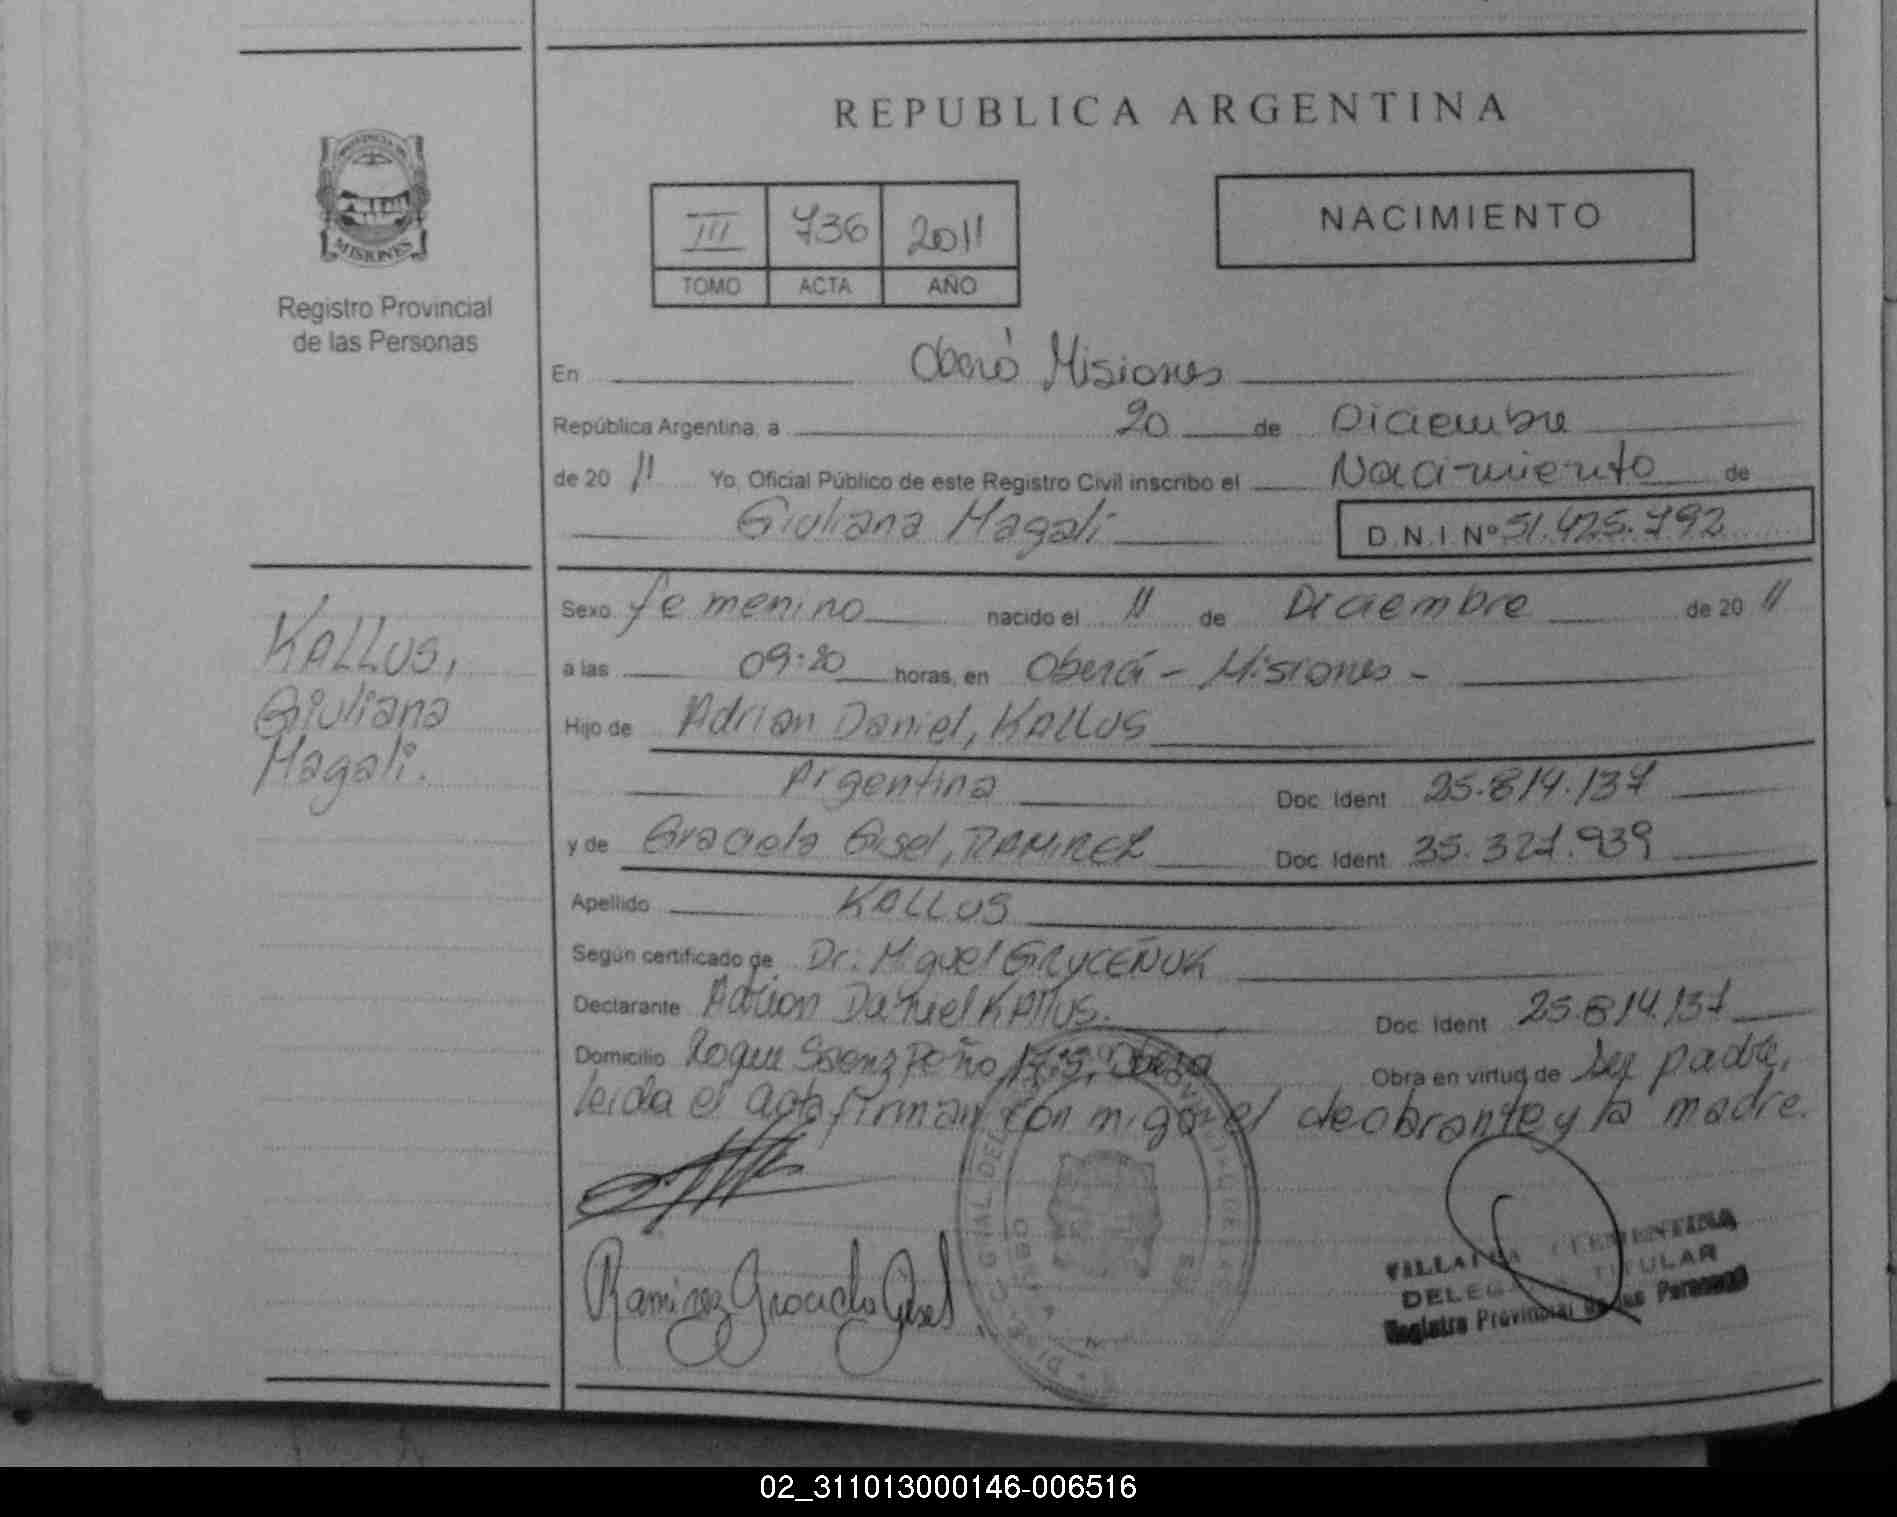 REPUBLICA ARGENTINA
MISIONES
Registro Provincial
de las Personas
III 736 2011
TOMO ACTA AÑO
NACIMIENTO
En Oberá Misiones
República Argentina, a 20 de Diciembre
de 20 11 Yo, Oficial Público de este Registro Civil inscribo el Nacimiento de
Giuliana Magali D.N.I. Nº 51.425.792
KALLUS,
Giuliana
Magali.
Sexo femenino nacido el 11 de Diciembre de 20 11
a las 09:20 horas, en Oberá - Misiones -
Hijo de Adrian Daniel, KALLUS
Argentina Doc. Ident. 25.814.137
y de Graciela Gisel, RAMIREZ Doc. Ident. 35.327.939
Apellido KALLUS
Según certificado de Dr. Miguel GRYCEÑUK
Declarante Adrian Daniel KALLUS. Doc. Ident. 25.814.137
Domicilio Roque Saenz Peña Obera Obra en virtud de ser padre,
leida el acta firman con migo el declarante y la madre.
Ramirez Graciela Gisel
CLEMENTINA
TITULAR
Registro Provincial de las Personas
02_311013000146-006516